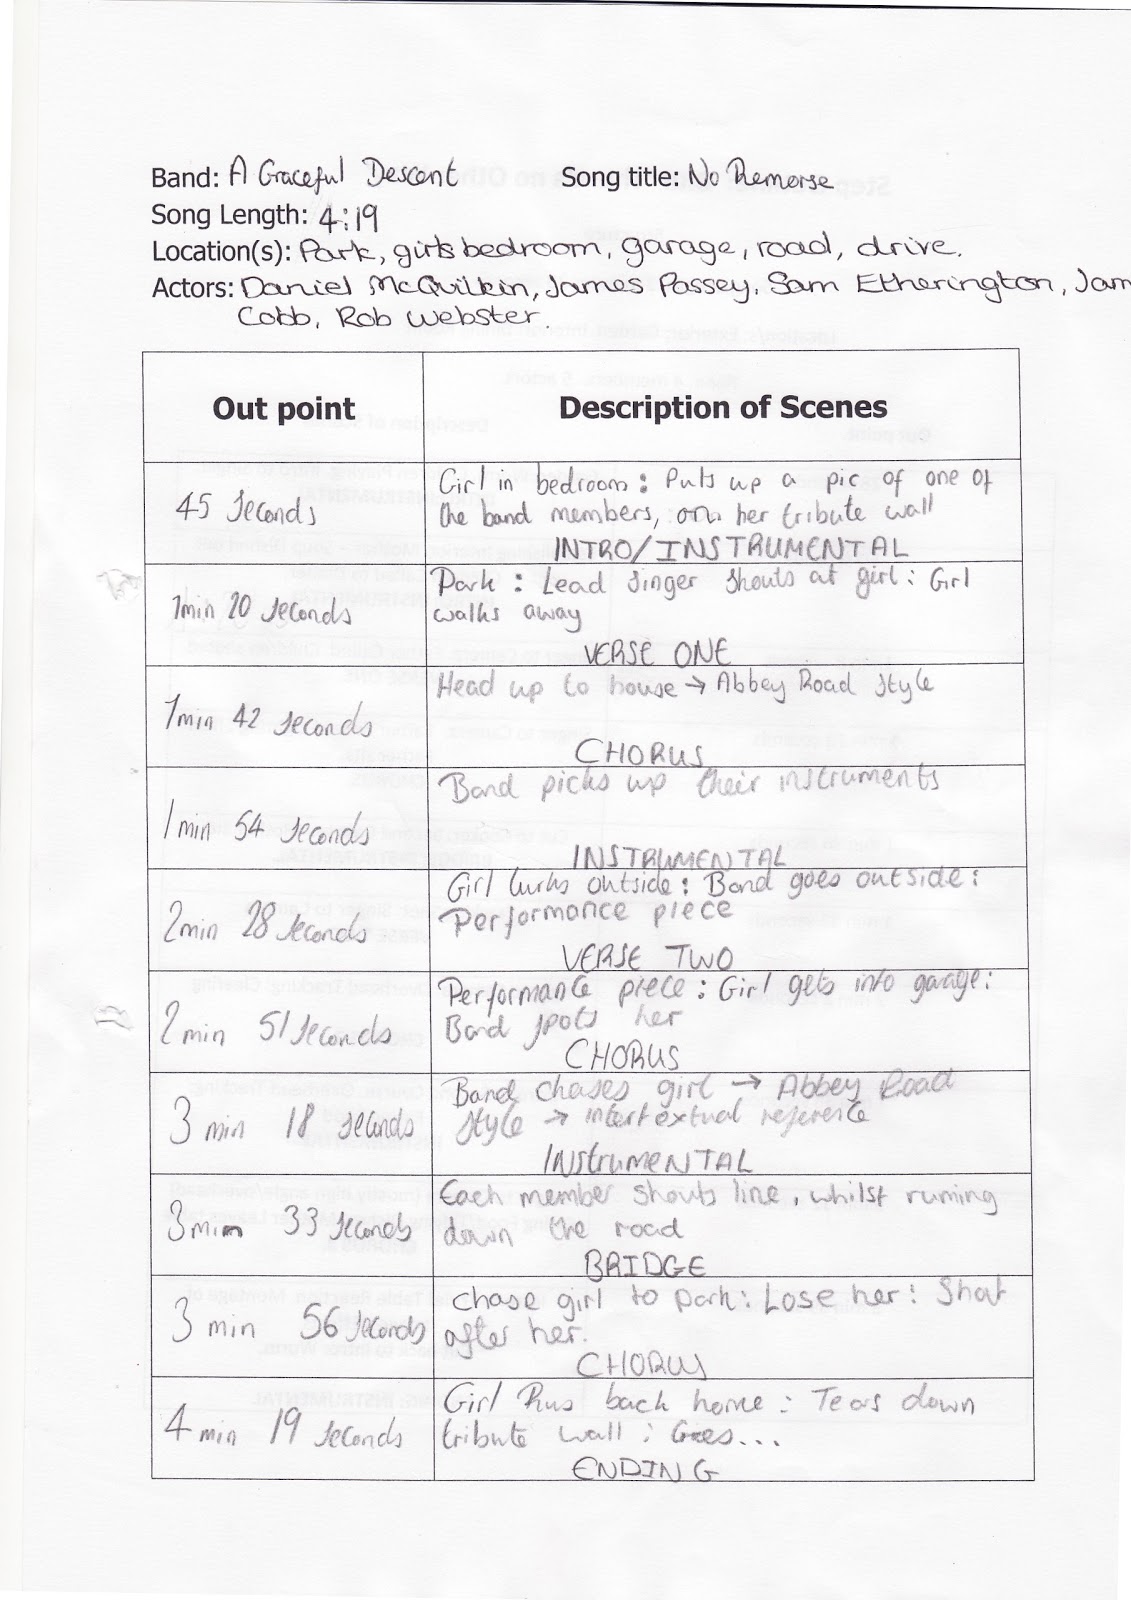 Band: A Graceful Descent Song title: No Remorse
Song Length: 4:19
Location(s): Park, girls bedroom, garage, road, drive.
Actors: Daniel McQuilkin, James Passey, Sam Etherington, Jam
Cobb, Rob Webster.
Out point Description of Scenes
45 Seconds
Girl in bedroom: Puts up a pic of one of
the band members, on her tribute wall
INTRO/INSTRUMENTAL
1min 20 seconds
Park: Lead singer shouts at girl: Girl
walks away
VERSE ONE
1min 42 seconds
Head up to house → Abbey Road style
CHORUS
1min 54 seconds
Band picks up their instruments
INSTRUMENTAL
2min 28 seconds
Girl lurks outside: Band goes outside:
Performance piece
VERSE TWO
2min 51 seconds
Performance piece: Girl gets into garage:
Band spots her
CHORUS
3 min 18 seconds
Band chases girl → Abbey Road
style → intertextual reference
INSTRUMENTAL
3min 33 seconds
Each member shouts line, whilst running
down the road
BRIDGE
3 min 56 seconds
Chase girl to park: Lose her: Shout
after her.
CHORUS
4 min 19 seconds
Girl Runs back home: Tears down
tribute wall: Cries...
ENDING